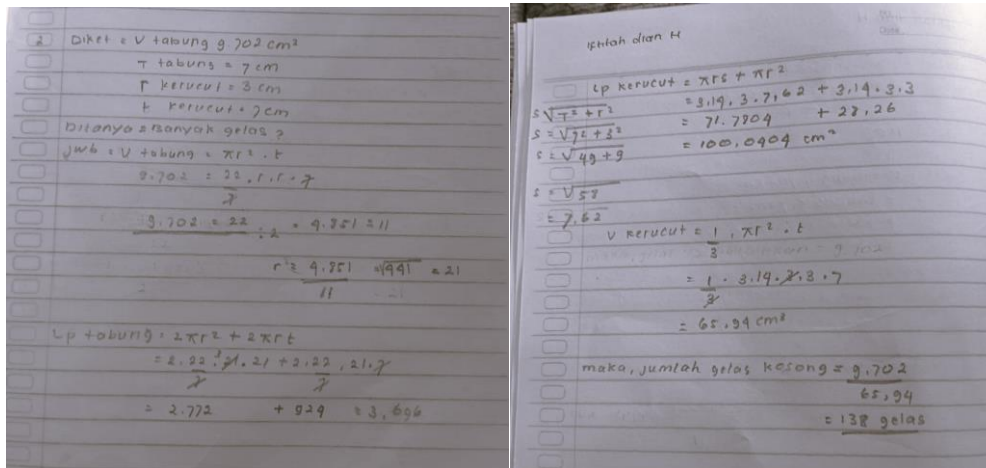 2 Diket = V tabung 9.702 cm³
T tabung = 7 cm
r kerucut = 3 cm
t kerucut = 7 cm
Ditanya = Banyak gelas ?
Jwb = V tabung = πr² . t
9.702 = 22 . r . r . 7
7
9.702 = 22 : 2 = 4.851 = 11
r² = 4.851 = √441 = 21
11
Lp tabung = 2πr² + 2πrt
= 2.22 . 21 . 21 + 2.22 . 21 . 7
7 7
= 2.772 + 924 = 3,696
Iftitah dian H
Lp kerucut = πrs + πr²
= 3,14 . 3 . 7,62 + 3,14 . 3 . 3
s √T² + r² = 71.7804 + 28,26
s = √7² + 3² = 100,0404 cm²
s = √49 + 9
s = √58
= 7,62
V kerucut = 1 . πr² . t
3
= 1 . 3.14 . 3 . 3 . 7
3
= 65,94 cm³
maka, jumlah gelas kosong = 9.702
65,94
= 138 gelas